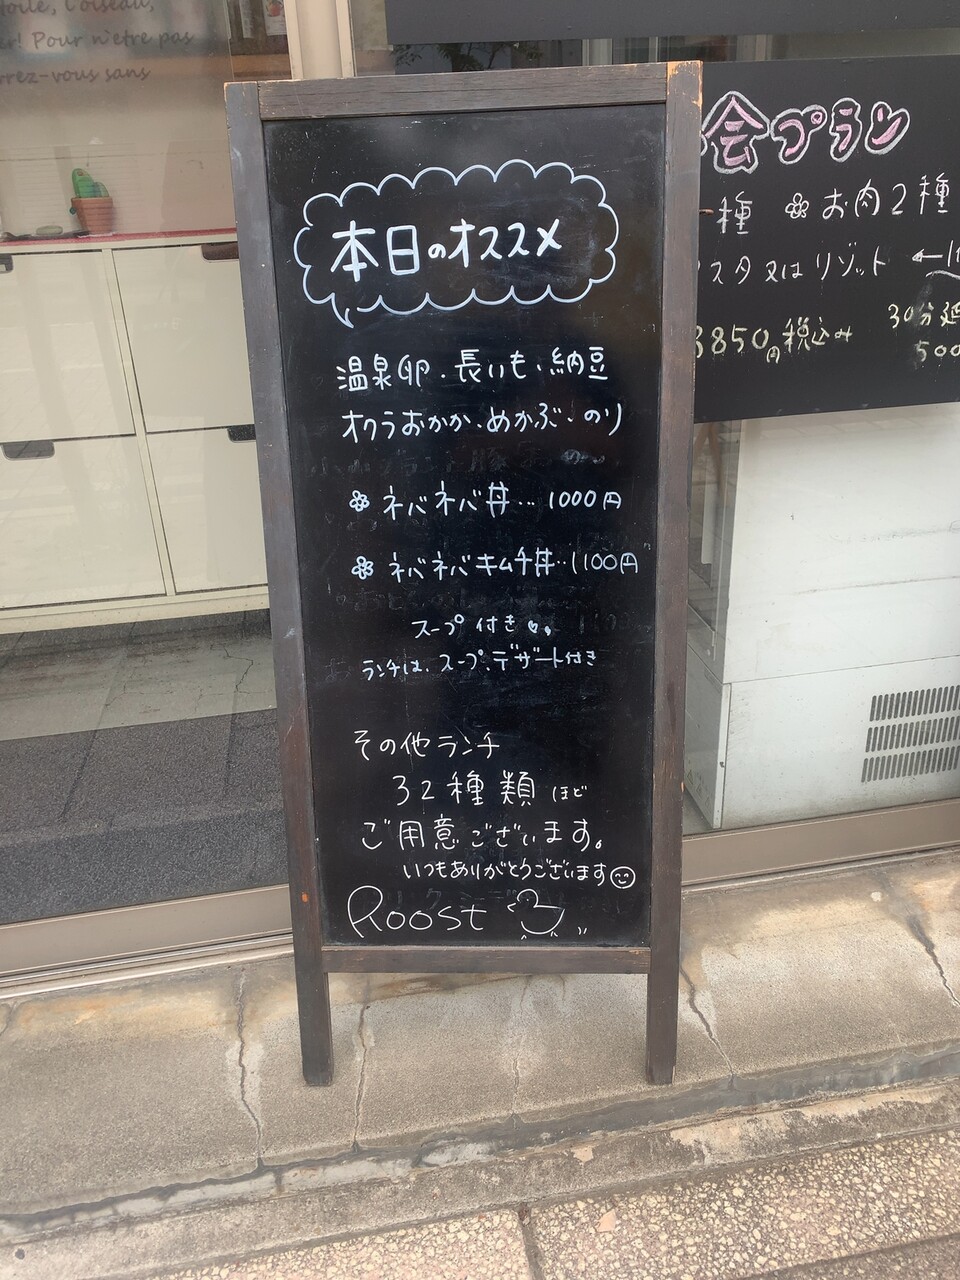 toile, l'oiseau,
r! Pour n'etre pas
rrez-vous sans
本日のオススメ
温泉卵・長いも・納豆
オクラおかか・めかぶ・のり
ネバネバ丼…1000円
ネバネバキムチ丼…1100円
スープ付き
ランチは、スープ、デザート付き
その他ランチ
32種類ほど
ご用意ございます。
いつもありがとうございます
Roost
会プラン
種 お肉2種
スタ又はリゾット
3850円税込み
30分延
500